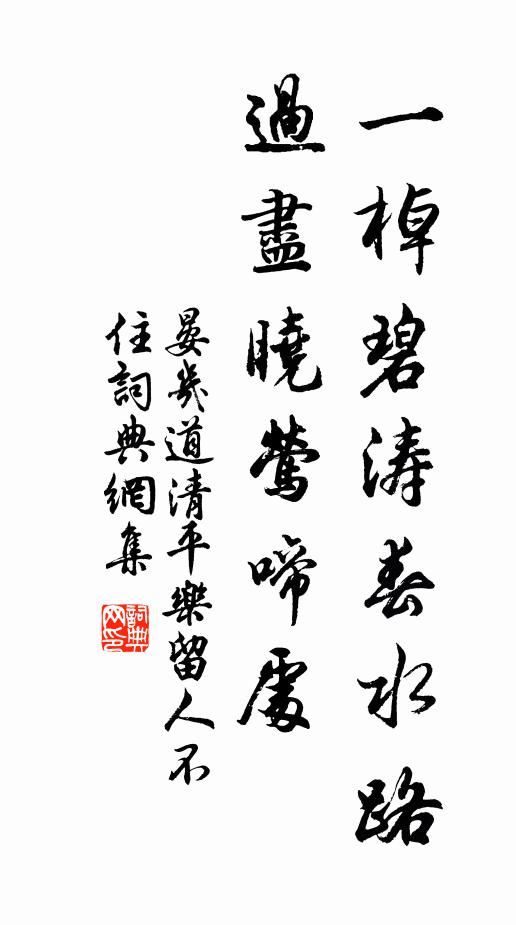 一棹碧涛春水路
過盡曉鶯啼處
晏幾道清平樂留人不
住詞典網集
詞典
网印